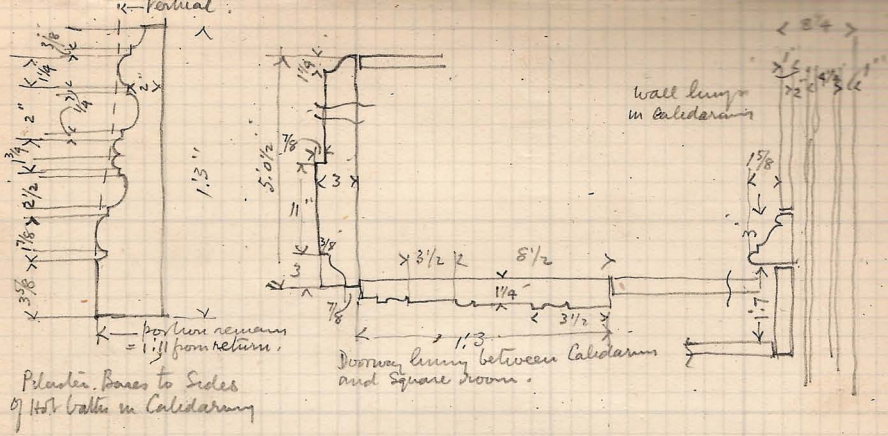 Vertical.
3/8
1
1 1/4
2"
1/4
2"
1 3/4
2 1/2
1 7/8
3 5/8
1'.3"
portion remains
= 1'.11 from return.
Pilaster. Bases to Sides
of Hot baths in Calidarium
1 1/4
5'.0 1/2
7/8
3
11"
3/8
3
7/8
3 1/2
8 1/2
1 1/4
3 1/2
1'.3
Doorway lining between Calidarium
and Square room.
Wall linings
in Calidarium
8 1/4
2"
4 1/2
1"
1 5/8
3
1'.7